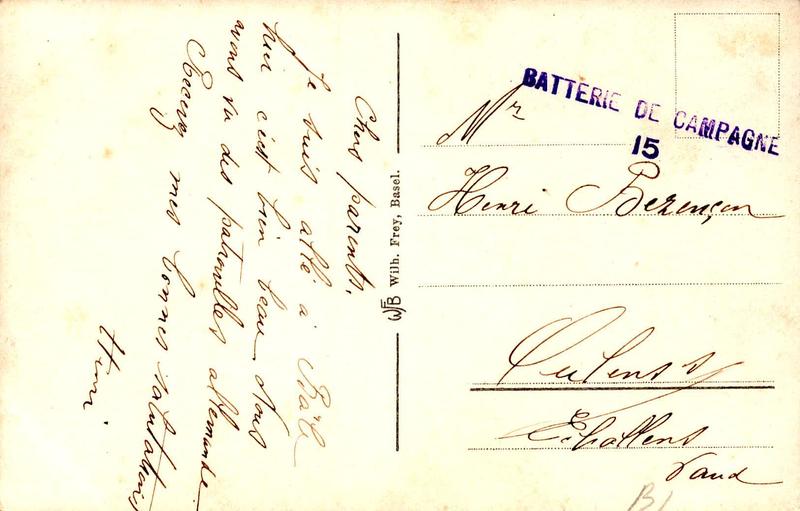 Chers parents,
Je suis allé à Bâle
hier c'est bien beau. Nous
avons vu des patrouilles allemande.
Recevez mes bonnes salutations
Henri
WFB Wilh. Frey, Basel.
BATTERIE DE CAMPAGNE
15
Mr
Henri Bezençon
Oulens s/
Echallens
Vaud
B/